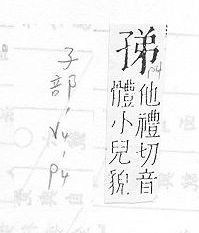 p4
他禮切音
體小兒貌
子部 V4. p4